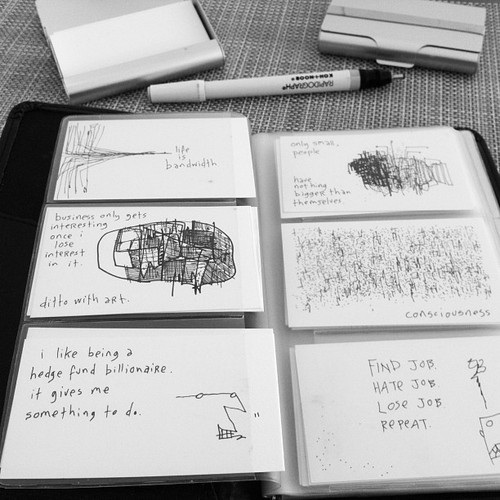 RAPIDOGRAPH®
KOH-I-NOOR®
life
is
bandwidth
business only gets
interesting
once i
lose
interest
in it.
ditto with art.
i like being a
hedge fund billionaire.
it gives me
something to do.
"
only small,
people
have
nothing
bigger than
themselves.
consciousness
FIND JOB.
HATE JOB.
LOSE JOB.
REPEAT.